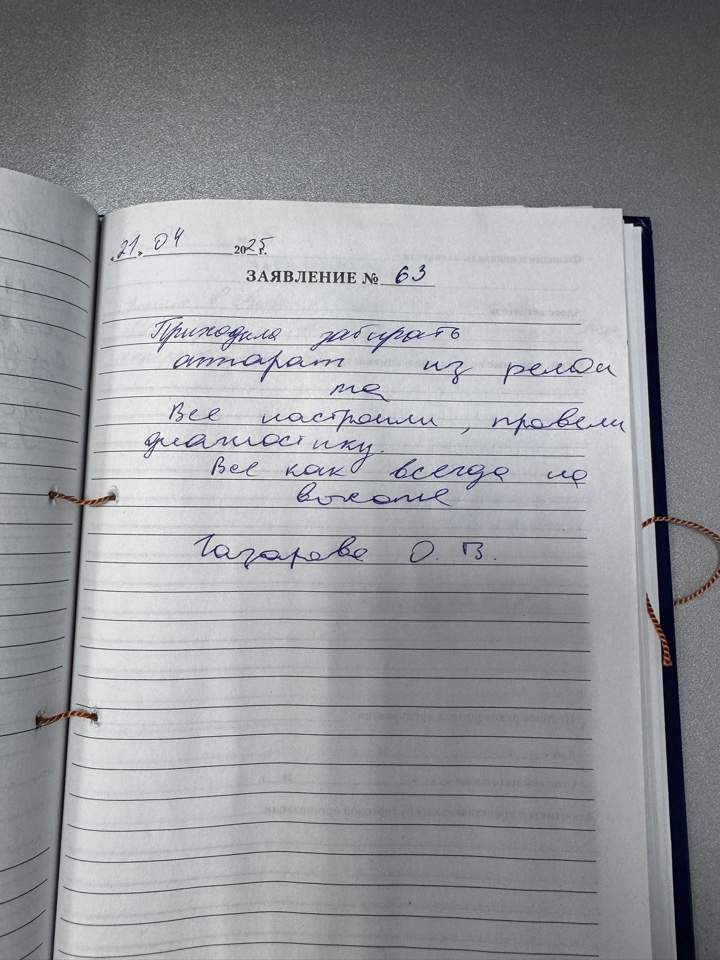 «21» 04 2025 г.
ЗАЯВЛЕНИЕ № 63
Приходила забирать
аппарат из ремон
та
Все настроили, провели
диагностику.
Все как всегда на
высоте
Газарова О. В.